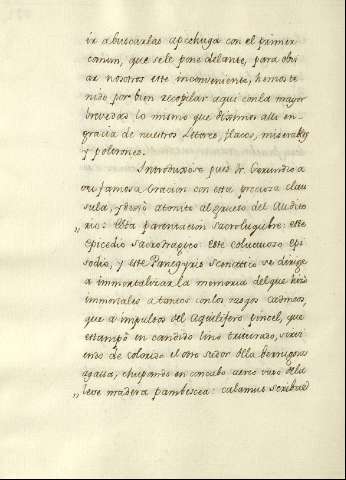 ir a buscarlas apechuga con el primer
comun, que se le pone delante, para obvi
ar nosotros este inconveniente, hemos te
nido por bien recopilar aqui con la mayor
brevedad lo mismo que diximos alli en
gracia de nuestros Letores, flacos, miserables
y poltrones.
Introduxóse pues Fr. Gerundio a
su famosa Oracion con esta preciosa clau
sula, y dexó atonito al grueso del Audito
rio: Esta parentacion sacrolugubre: este
„ Epicedio sacrotragico: este coluctuoso Epi
sodio, y este Panegyris Scenatico se dirige
a immortalizar la memoria del que hizo
immortales a tantos con los rasgos cadmeos,
que a impulsos del Aquilifero pincel, que
estampó en candido lino triturado, sirvi
endo de colorido el atro sudor de la berrugosa
agalla, chupando en concabo aereo vaso de la
„ leve madera pambeocia: calamus scribae